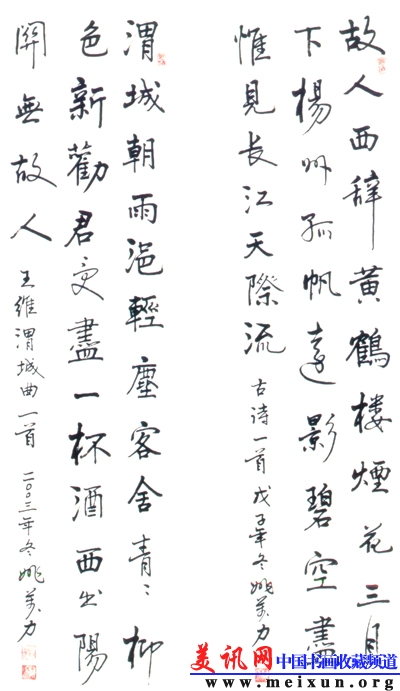 故人西辭黄鶴楼煙花三月
下楊州孤帆遠影碧空盡
惟見长江天際流 古诗一首戊子年冬姚萬力
渭城朝雨浥輕塵客舍青〻柳
色新勸君更盡一杯酒西出陽
關無故人 王維渭城曲一首 二〇〇三年冬姚萬力
美讯网 中国书画收藏频道
www.meixun.org